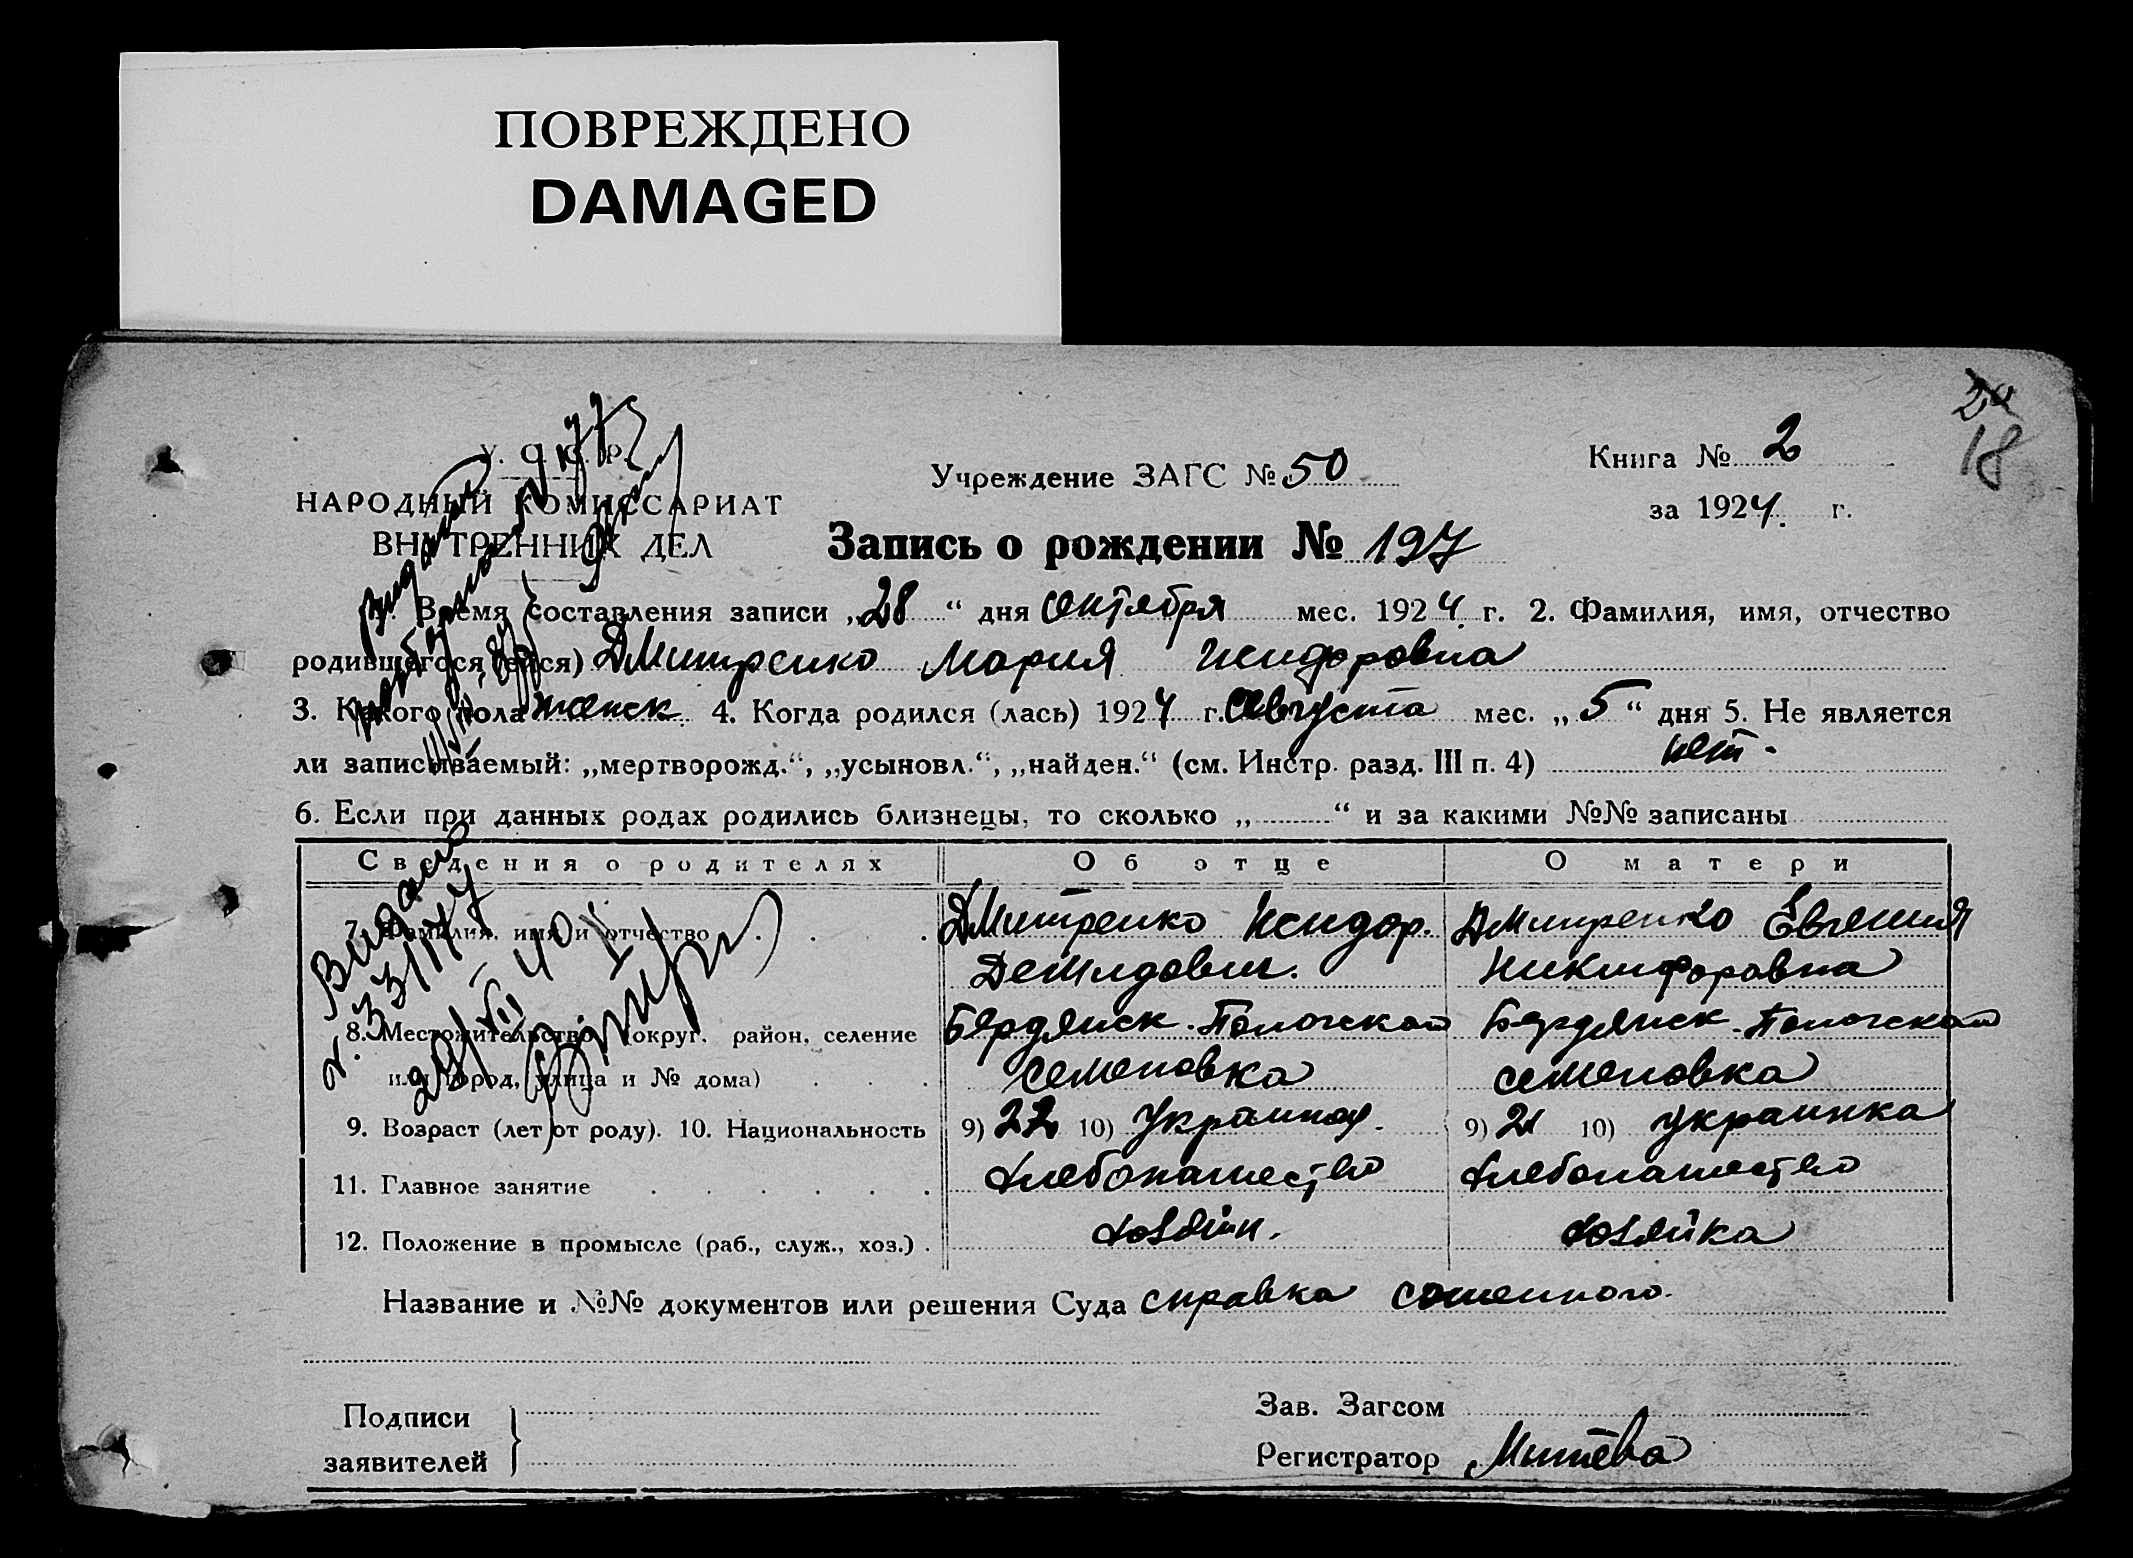 ПОВРЕЖДЕНО
DAMAGED
24
18
У. С. С. Р.
НАРОДНЫЙ КОМИССАРИАТ
ВНУТРЕННИХ ДЕЛ
Учреждение ЗАГС № 50
Книга № 2
за 1924 г.
Запись о рождении № 197
1. Время составления записи „28“ дня октября мес. 1924 г. 2. Фамилия, имя, отчество
родившегося (ейся) Дмитренко Мария Исидоровна
3. Какого пола женск 4. Когда родился (лась) 1924 г. Августа мес. „5“ дня 5. Не является
ли записываемый: „мертворожд.“, „усыновл.“, „найден.“ (см. Инстр. разд. III п. 4) нет.
6. Если при данных родах родились близнецы, то сколько „ “ и за какими №№ записаны
Сведения о родителях Об отце О матери
7. Фамилия, имя и отчество Дмитренко Исидор. Дмитренко Евгения
Демидович. Никифоровна
8. Местожительство (округ, район, селение Бердянск. Пологском Бердянск. Пологском
или город, улица и № дома) Семеновка Семеновка
9. Возраст (лет от роду). 10. Национальность 9) 22 10) Украинец. 9) 21 10) Украинка
11. Главное занятие Хлебопашество Хлебопашество
12. Положение в промысле (раб., служ., хоз.) Хозяин. Хозяйка
Название и №№ документов или решения Суда справка
Подписи
заявителей
Зав. Загсом
Регистратор
Видано
29/VII 40